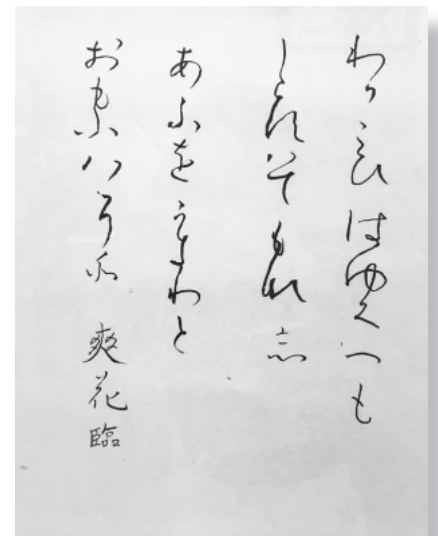 わかこひはゆくへも
しらすはてもなし
あふをかきりと
おもふハかりそ 爽花臨